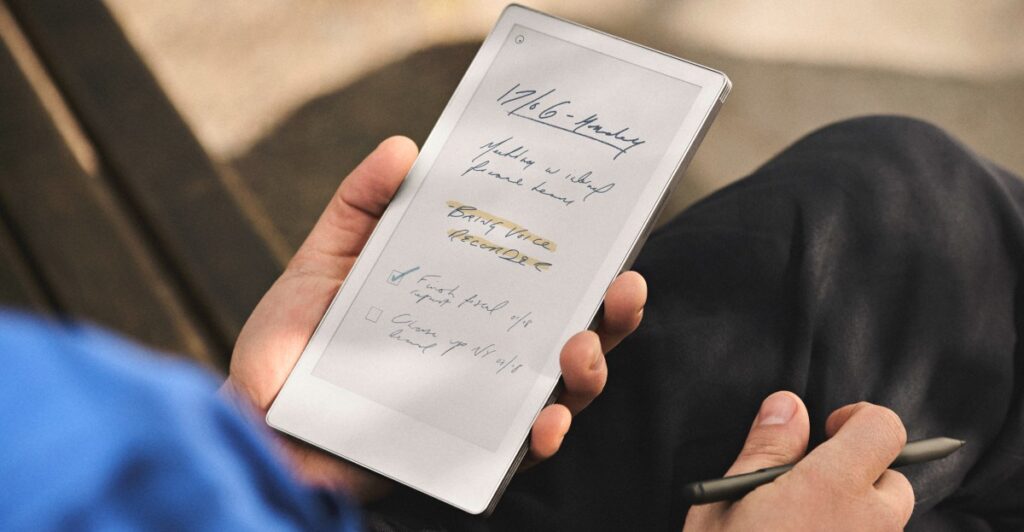 17/06 - Monday
Meeting w
Finance team
BRING VOICE
RECORDER
Finish fiscal
report 01/18
Close up NY